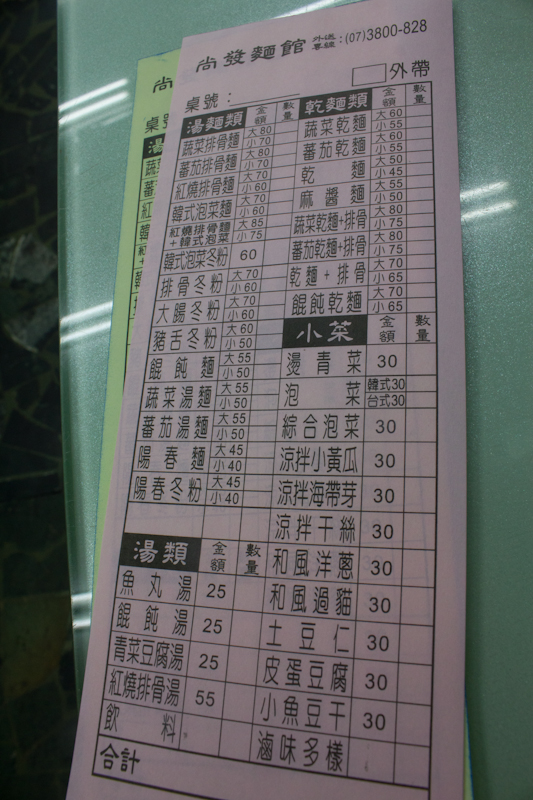 尚發麵館 外送專線:(07)3800-828
外帶
桌號:
湯麵類 金額 數量
蔬菜排骨麵 大80 小70
蕃茄排骨麵 大80 小70
紅燒排骨麵 大70 小60
韓式泡菜麵 大70 小60
紅燒排骨麵+韓式泡菜 大85 小75
韓式泡菜冬粉 60
排骨冬粉 大70 小60
大腸冬粉 大70 小60
豬舌冬粉 大60 小50
餛飩麵 大55 小50
蔬菜湯麵 大55 小50
蕃茄湯麵 大55 小50
陽春麵 大45 小40
陽春冬粉 大45 小40
湯類 金額 數量
魚丸湯 25
餛飩湯 25
青菜豆腐湯 25
紅燒排骨湯 55
飲料
合計
乾麵類 金額 數量
蔬菜乾麵 大60 小55
蕃茄乾麵 大60 小55
乾麵 大50 小45
麻醬麵 大55 小50
蔬菜乾麵+排骨 大80 小75
蕃茄乾麵+排骨 大80 小75
乾麵+排骨 大70 小65
餛飩乾麵 大70 小65
小菜 金額 數量
燙青菜 30
泡菜 韓式30 台式30
綜合泡菜 30
涼拌小黃瓜 30
涼拌海帶芽 30
涼拌干絲 30
和風洋蔥 30
和風過貓 30
土豆仁 30
皮蛋豆腐 30
小魚豆干 30
滷味多樣
尚
桌號